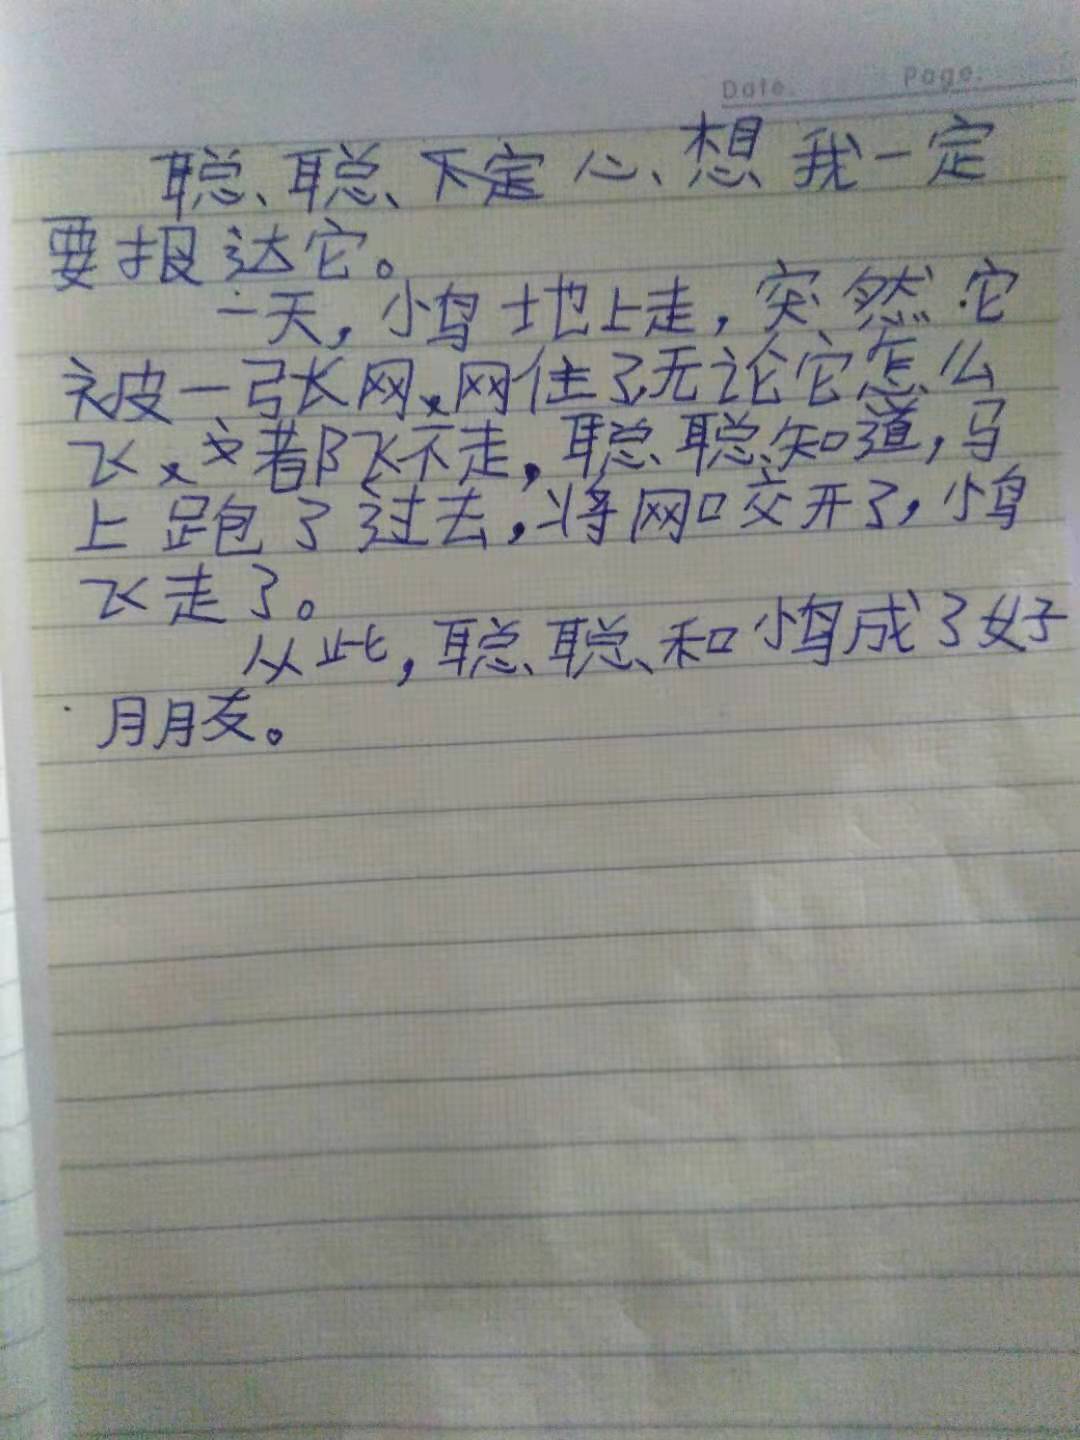 Date. Page.
聪聪下定心想我一定
要报达它。
一天，小鸟地上走，突然它
被一张网网住了无论它怎么
飞都飞不走，聪聪知道，马
上跑了过去，将网咬开了，小鸟
飞走了。
从此，聪聪和小鸟成了好
朋友。